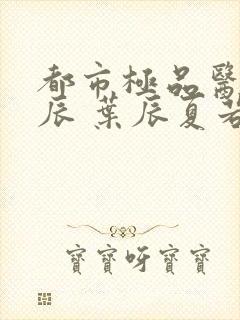 都市極品醫
辰 葉辰夏若
寶寶呀寶寶